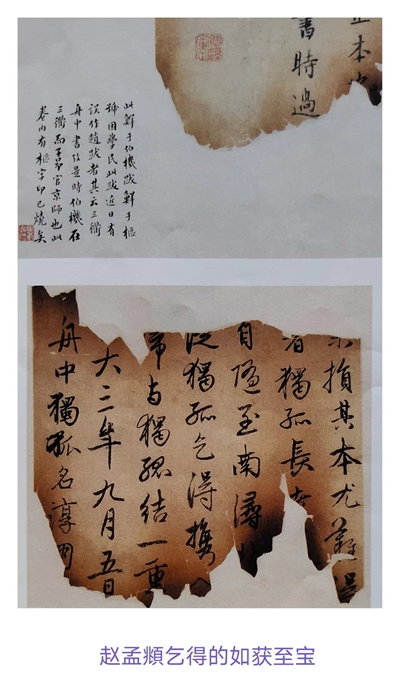 本
書時過
此鮮于伯機跋鮮于樞
號困學民此跋近日有
誤作趙跋者其云三衢
舟中書攷是時伯機在
三衢而子昂官京師也此
卷内有樞字印已燒矣
其本尤難
獨孤長
自隨至南潯
從獨孤乞得攜
與獨孤結一重
大三年九月五日
舟中獨孤名淳朋
赵孟頫乞得的如获至宝